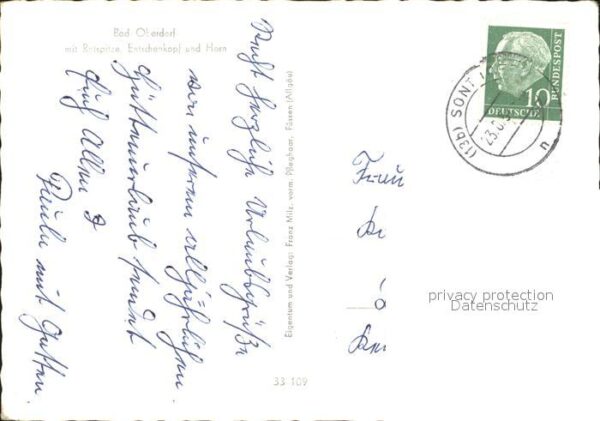 Bad Oberdorf
mit Rotspitze, Entschenkopf und Horn
Recht herzliche Urlaubsgrüße
von unserem alljährlichen
Hüttenurlaub sendet
Euch Allen
Paula mit Gatten
Eigentum und Verlag: Franz Milz, vorm. Pfleghaar, Füssen (Allgäu)
33 109
10
DEUTSCHE
BUNDESPOST
(13b) SONT
Frau
privacy protection
Datenschutz